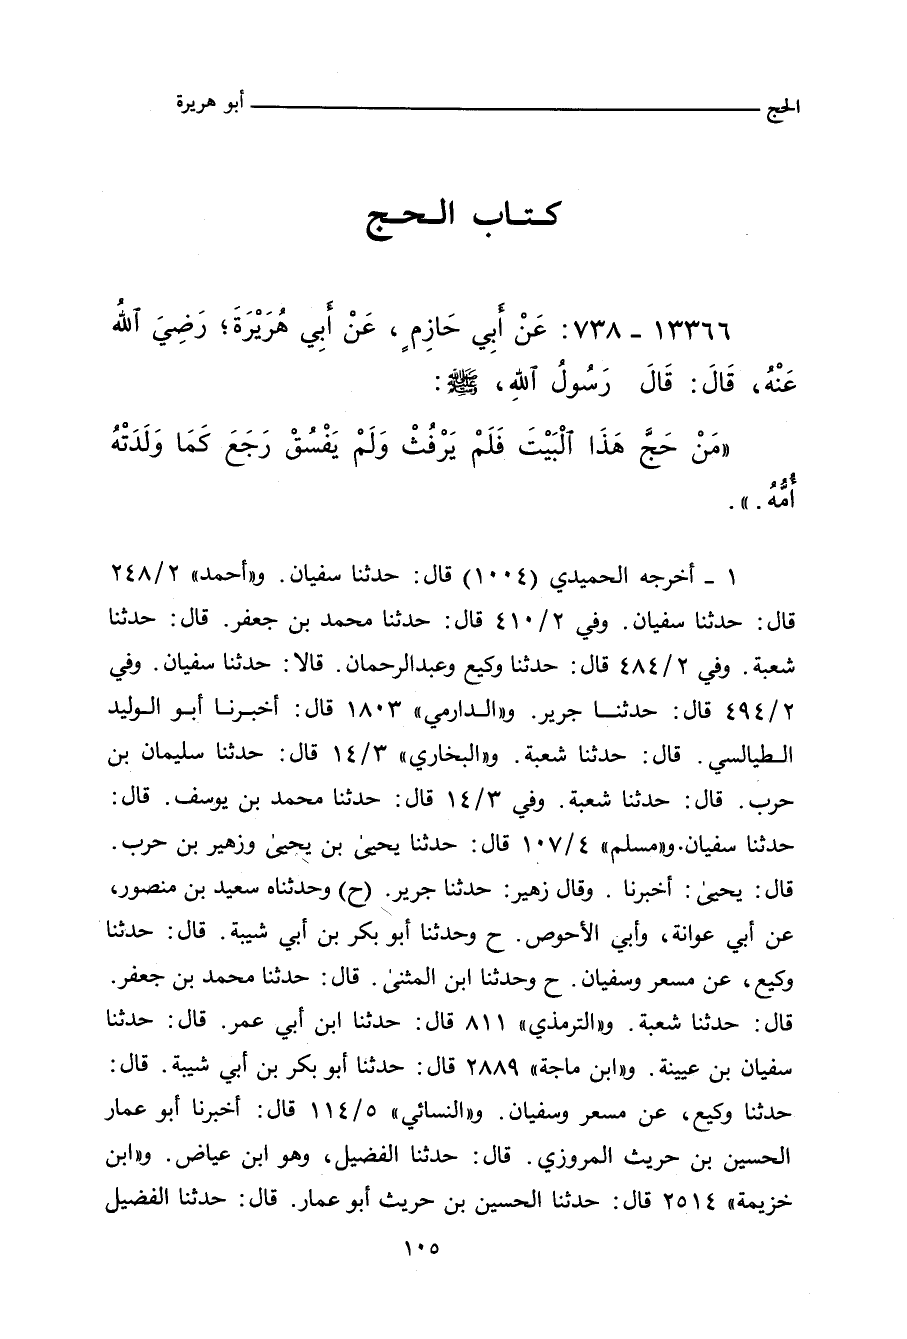 الحج ــــــــ أبو هريرة
كتاب الحج
١٣٣٦٦ ـ ٧٣٨: عَنْ أَبِي حَازِمٍ، عَنْ أَبِي هُرَيْرَةَ؛ رَضِيَ ٱللَّهُ
عَنْهُ، قَالَ: قَالَ رَسُولُ ٱللهِ، ﷺ:
«مَنْ حَجَّ هَذَا ٱلْبَيْتَ فَلَمْ يَرْفُثْ وَلَمْ يَفْسُقْ رَجَعَ كَمَا وَلَدَتْهُ
أُمُّهُ.».
١ ـ أخرجه الحميدي (١٠٠٤) قال: حدثنا سفيان. و«أحمد» ٢٤٨/٢
قال: حدثنا سفيان. وفي ٤١٠/٢ قال: حدثنا محمد بن جعفر. قال: حدثنا
شعبة. وفي ٤٨٤/٢ قال: حدثنا وكيع وعبدالرحمان. قالا: حدثنا سفيان. وفي
٤٩٤/٢ قال: حدثنا جرير. و«الدارمي» ١٨٠٣ قال: أخبرنا أبو الوليد
الطيالسي. قال: حدثنا شعبة. و«البخاري» ١٤/٣ قال: حدثنا سليمان بن
حرب. قال: حدثنا شعبة. وفي ١٤/٣ قال: حدثنا محمد بن يوسف. قال:
حدثنا سفيان. و«مسلم» ١٠٧/٤ قال: حدثنا يحيىٰ بن يحيىٰ وزهير بن حرب.
قال: يحيىٰ: أخبرنا . وقال زهير: حدثنا جرير. (ح) وحدثناه سعيد بن منصور،
عن أبي عوانة، وأبي الأحوص. ح وحدثنا أبو بكر بن أبي شيبة. قال: حدثنا
وكيع، عن مسعر وسفيان. ح وحدثنا ابن المثنىٰ. قال: حدثنا محمد بن جعفر.
قال: حدثنا شعبة. و«الترمذي» ٨١١ قال: حدثنا ابن أبي عمر. قال: حدثنا
سفيان بن عيينة. و«ابن ماجة» ٢٨٨٩ قال: حدثنا أبو بكر بن أبي شيبة. قال:
حدثنا وكيع، عن مسعر وسفيان. و«النسائي» ١١٤/٥ قال: أخبرنا أبو عمار
الحسين بن حريث المروزي. قال: حدثنا الفضيل، وهو ابن عياض. و«ابن
خزيمة» ٢٥١٤ قال: حدثنا الحسين بن حريث أبو عمار. قال: حدثنا الفضيل
١٠٥